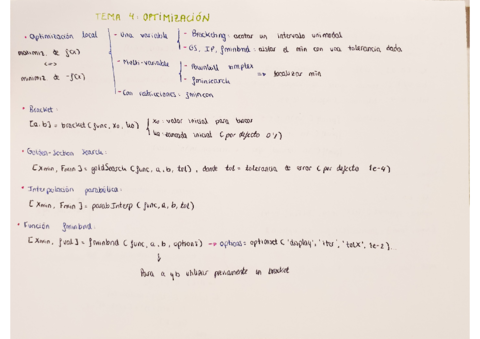 TEMA 4: OPTIMIZACIÓN
· Optimización local
maximiz. de f(x)
<=>
minimiz. de -f(x)
- Una variable
- Bracketing: acotar un intervalo unimodal
- GS, IP, fminbnd: aislar el mín con una tolerancia dada
- Multi-variable
- Downhill simplex
- fminsearch
=> localizar mín
- Con restricciones: fmincon
· Bracket:
[a,b] = bracket (func, x0, h0)
x0: valor inicial para buscar
h0: anchada inicial (por defecto 0'1)
· Golden-Section Search:
[xmin, Fmin] = goldSearch (func, a, b, tol), donde tol = tolerancia de error (por defecto 1e-9)
· Interpolación parabólica:
[xmin, Fmin] = parabInterp (func, a, b, tol)
· Función fminbnd:
[xmin, fval] = fminbnd (func, a, b, options) → options: optimset ('display', 'iter', 'tolX', 1e-2)...
↓
Para a y b utilizar previamente un bracket